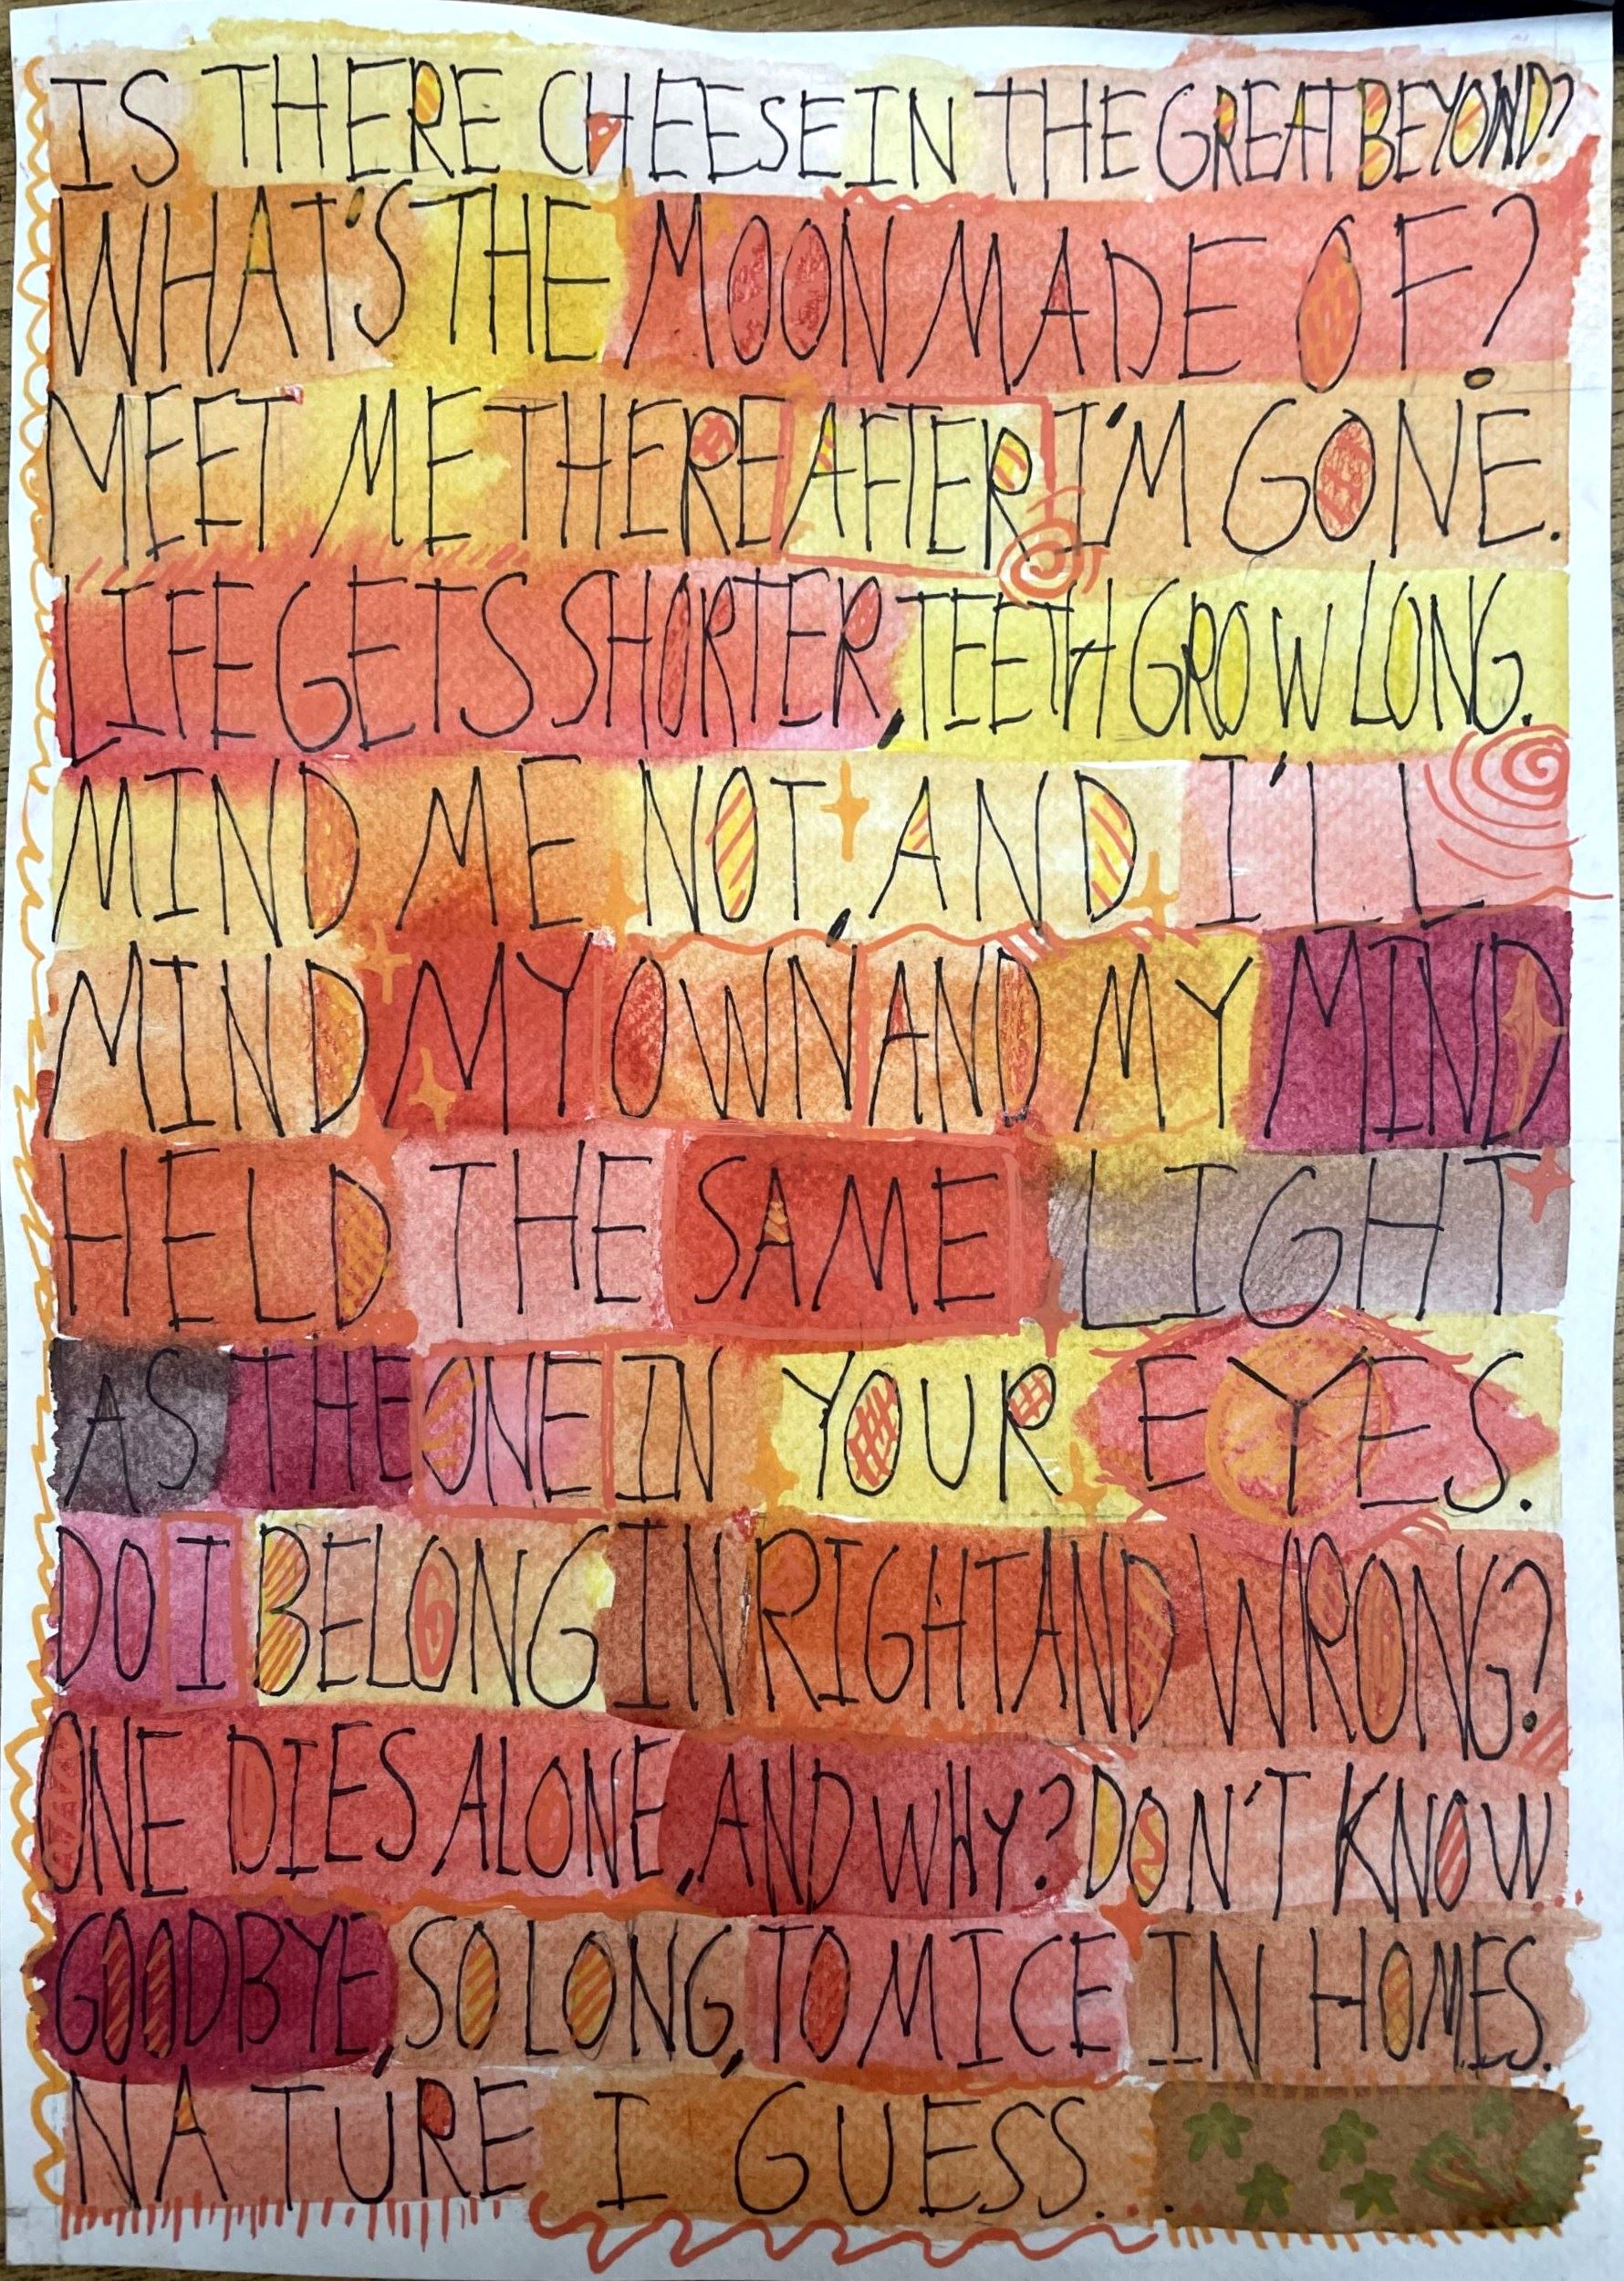 IS THERE CHEESE IN THE GREAT BEYOND?
WHAT'S THE MOON MADE OF?
MEET ME THERE AFTER I'M GONE.
LIFE GETS SHORTER, TEETH GROW LONG.
MIND ME NOT, AND I'LL
MIND MY OWN AND MY MIND
HELD THE SAME LIGHT
AS THE ONE IN YOUR EYES.
DO I BELONG IN RIGHT AND WRONG?
ONE DIES ALONE, AND WHY? DON'T KNOW.
GOODBYE, SO LONG, TO MICE IN HOMES.
NATURE I GUESS...